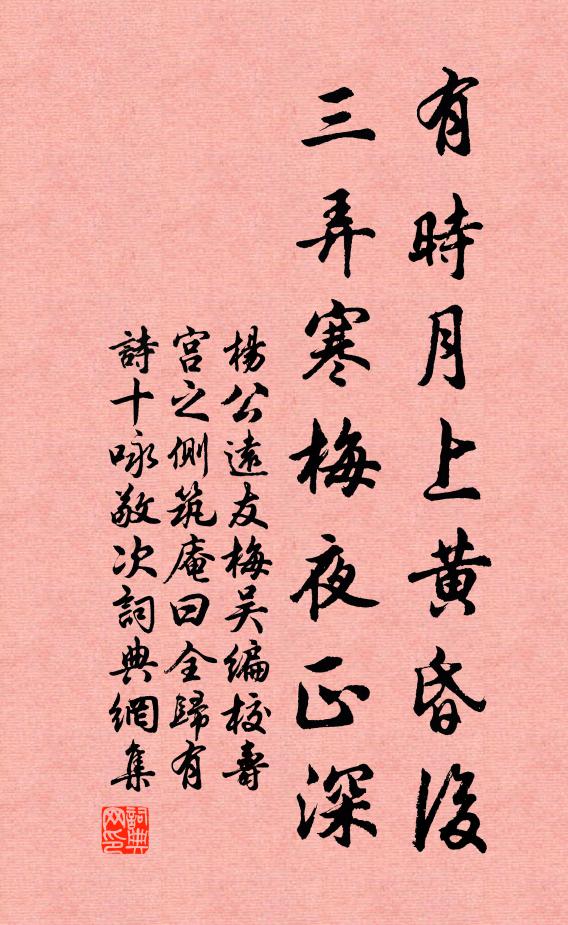 有時月上黄昏後
三弄寒梅夜正深
楊公遠友梅吴編校壽
宫之側筑庵曰全歸有
詩十咏敬次詞典網集
詞典网印